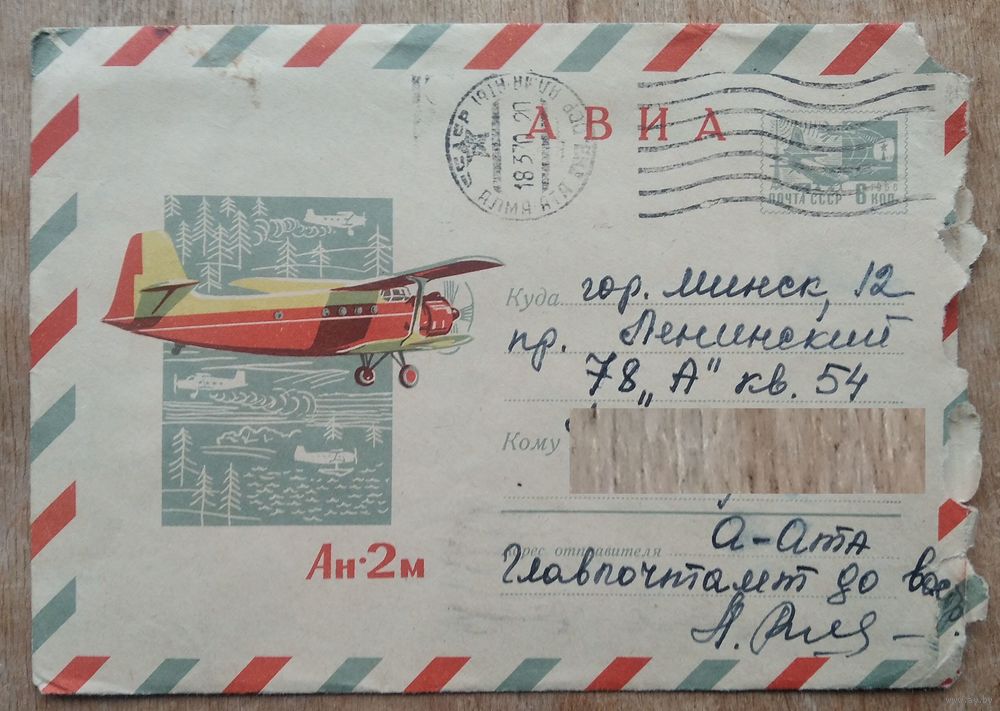 АВИА
АЛМА-АТА
18 3 70 20
ПОЧТА СССР 6 КОП.
Куда гор. Минск, 12
пр. Ленинский
78 „А" кв. 54
Кому
Адрес отправителя А-Ата
Главпочтамт до
Ан-2м
www.ay.by